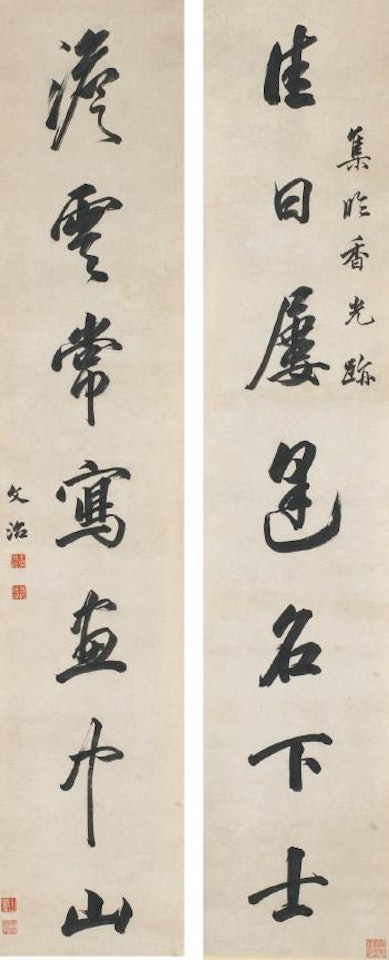 集臨香光跡
佳日屢逢名下士
澹雲常寫畫中山
文治